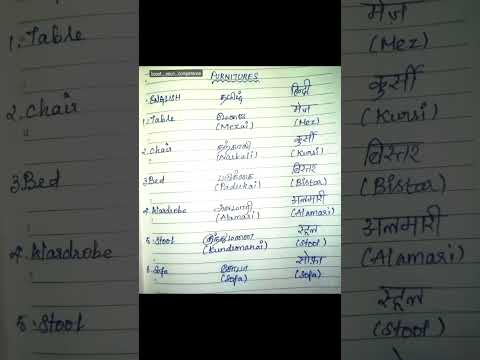 FURNITURES
ENGLISH தமிழ் हिंदी
1.Table மேஜை मेज़
(Mezai) (Mez)
2.Chair நாற்காலி कुर्सी
(Narkali) (Kursi)
3.Bed படுக்கை बिस्तर
(Padukai) (Bistar)
4.Wardrobe அலமாரி अलमारी
(Alamari) (Alamari)
5.Stool स्टूल
(Kundromanai) (Stool)
6.Sofa சோபா सोफ़ा
(Sofa) (Sofa)
1.Table
2.Chair
3.Bed
4.Wardrobe
5.Stool
मेज़
(Mez)
कुर्सी
(Kursi)
बिस्तर
(Bistar)
अलमारी
(Alamari)
स्टूल
(Stool)